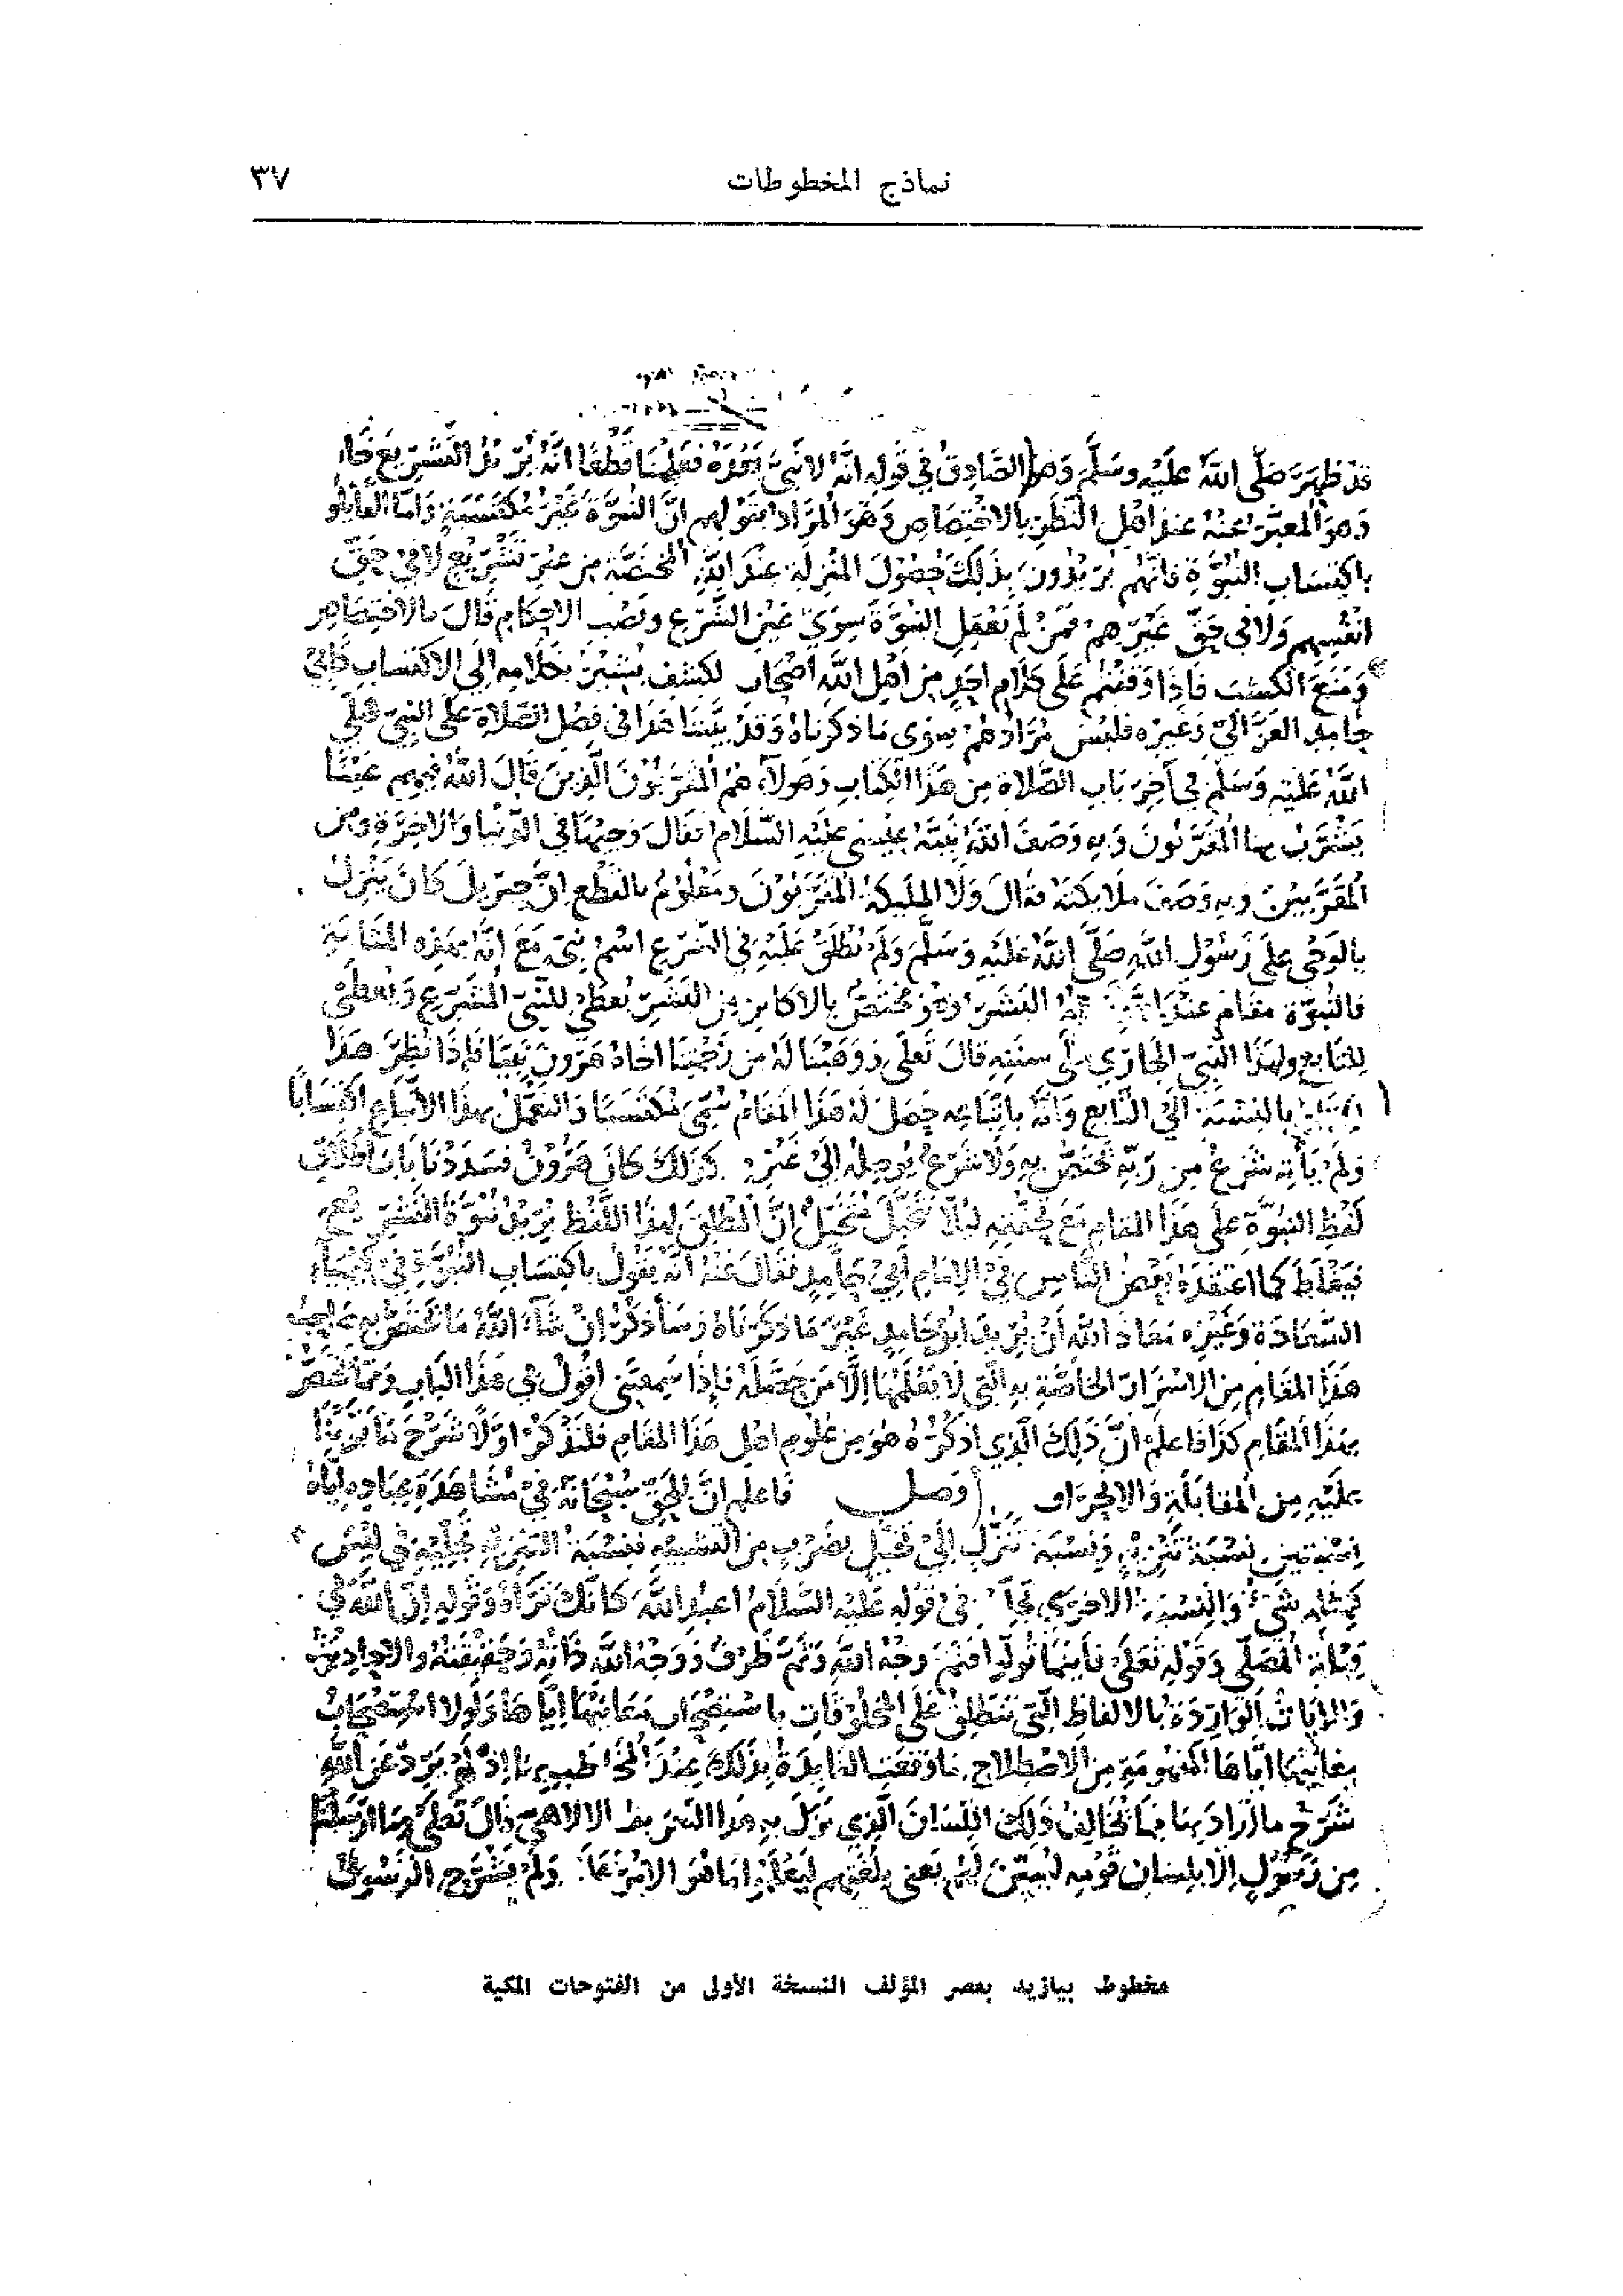 نماذج المخطوطات ٣٧
قد ظهر صلى الله عليه وسلم وهو الصادق في قوله انه لا نبي بعده فعلمنا قطعا انه يريد التشريع
وهو المعبر عنه عند اهل النظر بالاختصاص وهو المراد بقولهم ان النبوة غير مكتسبة واما القايلو
باكتساب النبوة فانهم يريدون بذلك حصول المنزلة عند الله المختصة من غير تشريع لا في حق
انفسهم ولا في حق غيرهم فمن لم يعقل النبوة سوى عين الشرع ونصب الاحكام قال بالاختصاص
ومنع الكسب فاذا وقفتم على كلام احد من اهل الله اصحاب الكشف يشير بكلامه الى الاكتساب كابي
حامد الغزالي وغيره فليس مرادهم سوى ما ذكرناه وقد بينا هذا في فصل الصلاة على النبي صلى
الله عليه وسلم في آخر باب الصلاة من هذا الكتاب وهولاء هم المقربون الذين قال الله فيهم عينا
يشرب بها المقربون وبه وصف الله نبيه عيسى عليه السلام فقال وجيها في الدنيا والاخرة ومن
المقربين وبه وصف ملايكته فقال ولا المليكة المقربون ومعلوم بالقطع ان جبريل كان ينزل
بالوحي على رسول الله صلى الله عليه وسلم ولم يطلق عليه في الشرع اسم نبي مع انه بهذه المثابة
فالنبوة مقام عند الله البشر وهو مختص بالاكابر من البشر يعطى للنبي المشرع ويعطى
للتابع لهذا النبي الجاري على سنته قال تعلى ووهبنا له من رحمتنا اخاه هرون نبيا فاذا نظر هذا
بالنسبة الى التابع وانه باتباعه حصل له هذا المقام سمي مكتسبا والتعمل بهذا الاتباع اكتسابا
ولم يأته شرع من ربه يختص به ولا شرع يوصله الى غيره كذلك كان هرون فسددنا باب اطلاق
لفظ النبوة على هذا المقام مع تحققه ليلا يتخيل متخيل ان المطلق لهذا اللفظ يريد نبوة التشريع
فيغلط كما اعتقده بعض الناس في الامام ابي حامد فقال عنه انه يقول باكتساب النبوة في كيمياء
السعادة وغيره معاذ الله ان يريد ابو حامد غير ما ذكرناه وسأذكر ان شاء الله ما يختص به صاحب
هذا المقام من الاسرار الخاصة به التي لا يعلمها الا من حصله فاذا سمعتني اقول في هذا الباب ومما يختص
بهذا المقام كذا فاعلم ان ذلك الذي اذكره هو من علوم اهل هذا المقام فلنذكر اولا شرح ما بوبنا
عليه من المقابلة والانحراف وصل فاعلم ان للحق سبحانه في مشاهدة عباده اياه
نسبتين نسبة تنزيه ونسبة تنزل الى الخيال بضرب من التشبيه فنسبة التنزيه تجليه في ليس
كمثله شيء والنسبة الاخرى في قوله عليه السلام اعبد الله كانك تراه وقوله ان الله في
قبلة المصلي وقوله تعلى فاينما تولوا فثم وجه الله وثم ظرف ووجه الله ذاته وحقيقته والاحاديث
والايات الواردة بالالفاظ التي تنطلق على المخلوقات باستصحاب معانيها اياها ولولا استصحاب
معانيها اياها المفهومة من الاصطلاح ما وقعت الفايدة بذلك عند المخاطب بها اذ لم يرد عن الله
شرح ما اراد بها مما يخالف ذلك اللسان الذي نزل به هذا التعريف الالاهي قال تعلى وما ارسلنا
من رسول الا بلسان قومه ليبين لهم يعني بلغتهم ليعلموا ما هو الامر عليه ولم يشرح الرسول
مخطوط بيازيد بعصر المؤلف النسخة الأولى من الفتوحات المكية